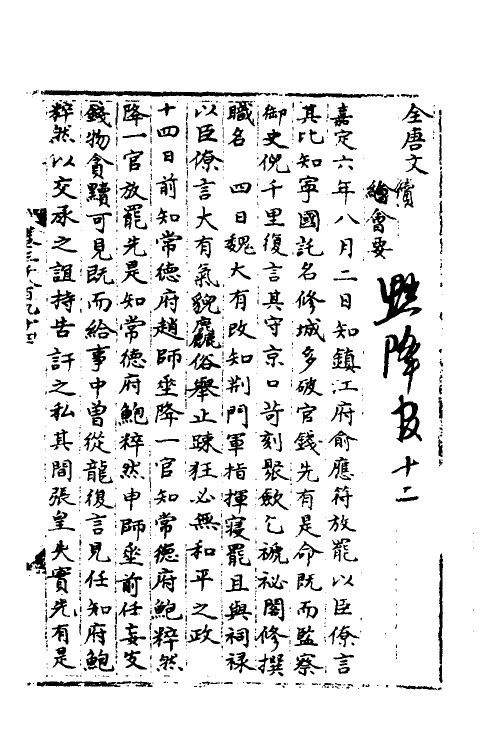 全唐文
續會要
黜降官十二
嘉定六年八月二日知鎮江府俞應符放罷以臣僚言
其比知寧國託名修城多破官錢先有是命既而監察
御史倪千里復言其守京口苛刻聚斂乞褫祕閣修撰
職名　四日魏大有改知荆門軍指揮寢罷且與祠祿
以臣僚言大有氣貌麤俗舉止踈狂必無和平之政
十四日前知常德府趙師垂降一官知常德府鮑粹然
降一官放罷先是知常德府鮑粹然申師垂前任妄支
錢物貪黷可見既而給事中曾從龍復言見任知府鮑
粹然以交承之誼持告訐之私其間張皇失實先有是